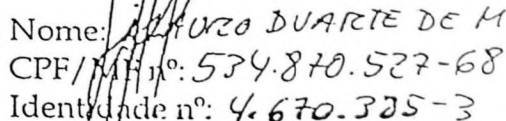 Nome: DUARTE DE M
CPF/MF nº: 534.870.527-68
Identidade nº: 4.670.385-3